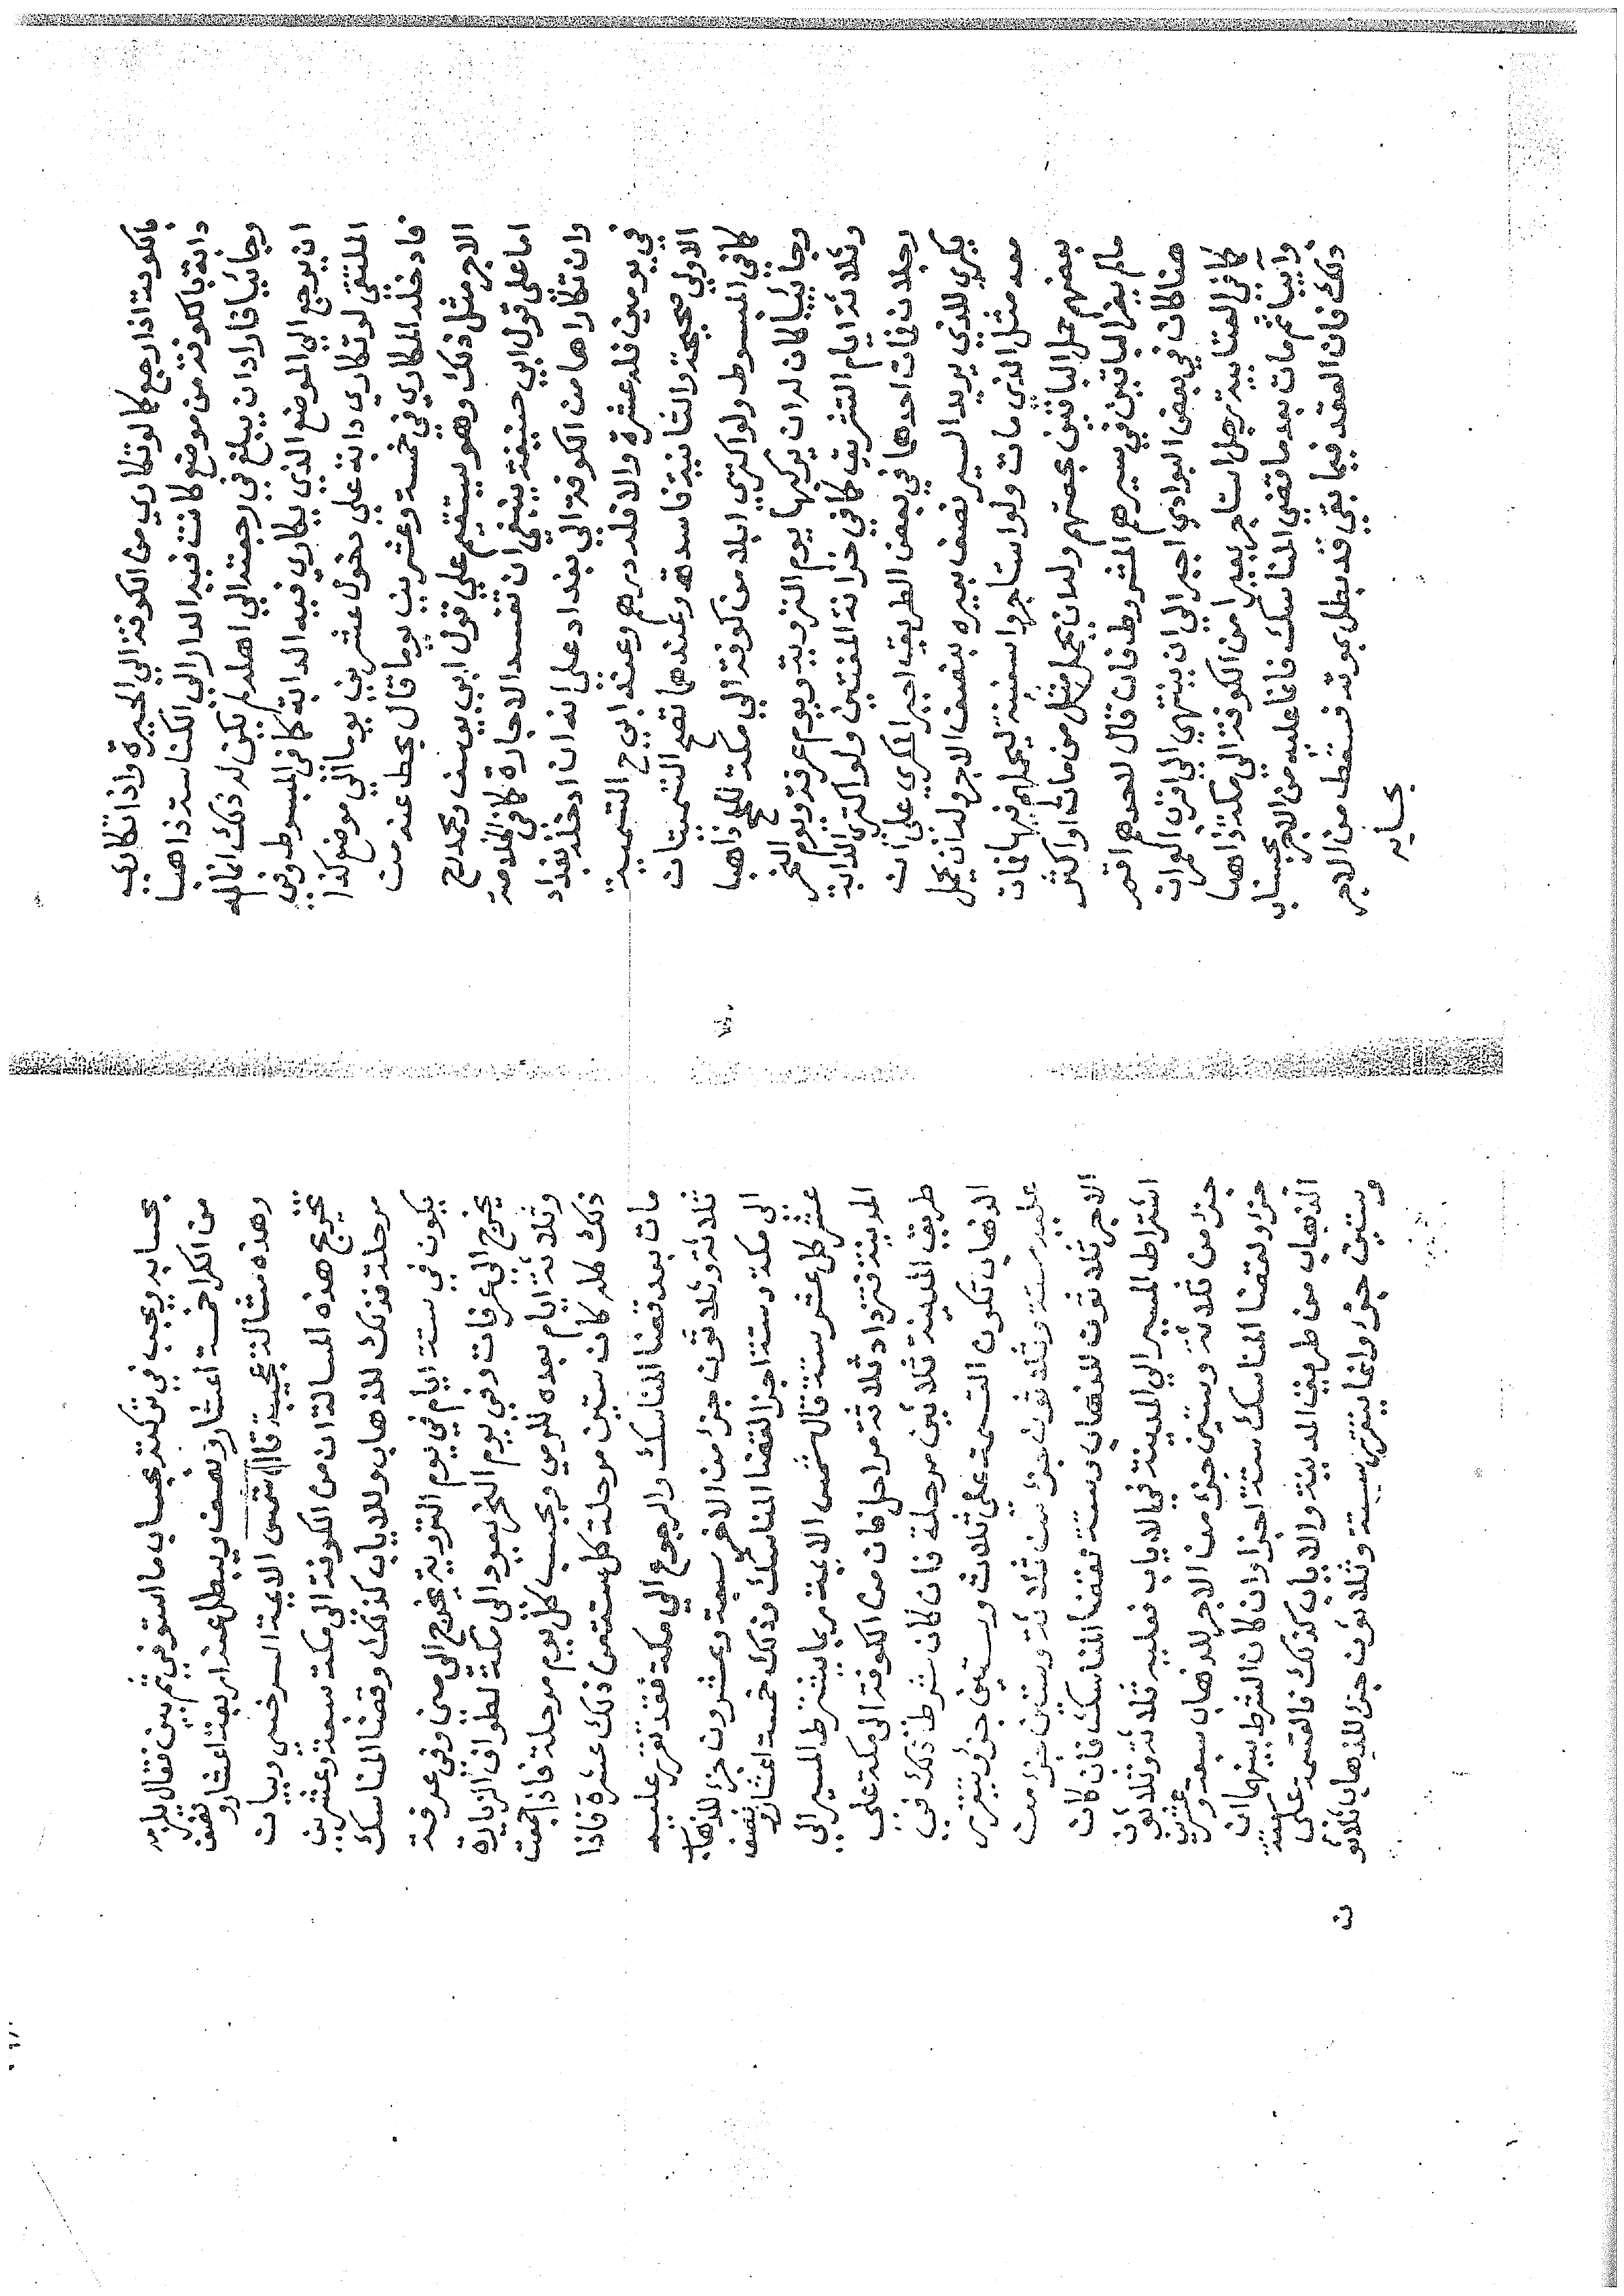 بالكوفة اذا رجع كما لو تكاري من الكوفة الي الحيرة واذا تكاريت
دابة بالكوفة من موضع كانت فيه الدار الي الكناسة ذاهبا
وجائيا فاراد ان يبلغ في رجعته الي اهله لم يكن له ذلك انما له
ان يرجع الي الموضع الذي يكاري فيه الدابة كما في المبسوط وفي
الملتقى لو تكاري دابة علي دخول عشرين يوما الي موضع كذا
فادخله المكاري في خمسة وعشرين يوما قال يحط عنه من
الاجر مثل ذلك وهو يستقيم علي قول ابي يوسف ومحمد رح
اما علي قول ابي حنيفة ينبغي ان تفسد الاجارة كما في الخلاصة
وان تكاراها من الكوفة الي بغداد علي انه ان ادخله بغداد
في يومين فله عشرة والا فله درهم وعند ابي ح التسمية
الاولي صحيحة والثانية فاسدة وعندهما تصح التسميتان
كما في المبسوط ولو اكتري ابلا من كوفة الي مكة للحج ذاهبا
وجائيا كان له ان يركبها يوم التروية ويوم عرفة ويوم النحر
وثلاثة ايام التشريق كما في خزانة المفتين ولو اكتري الدابة
رجلان فمات احدهما في بعض الطريق اجبر المكري علي ان
يكري للذي يريد السير نصف بعيره بنصف الاجر وله ان يحمل
معه مثل الذي مات ولو استاجروا سفينة ليحملهم فيها فمات
بعضهم حمل الباقين بحصتهم وله ان يحمل مثل من مات او اكثر
مالم يضر الباقين في سيرهم المشروط فان قال احدهم اقم
هنا كان في بعض البوادي اجبر الي ان ينتهي الي اقرب العمران
كما في العتابية رجل استاجر بعيرا من الكوفة الي مكة ذاهبا
وايبا ثم مات بعد ما قضي المناسك فانما عليه من الاجر بحسابه
وذلك فان العقد فيما بقي قد بطل بموته فسقط من الاجر
بحسابه
بحسابه ويجب في تركته بحساب ما استوفي ثم بين فقال يلزمه
من الكرا خمسة اعشار ونصف ويبطل عنه اربعة اعشار ونصف
وهذه مسالة عجيبة قال شمس الايمة السرخسي وبيان
تخريج هذه المسالة ان من الكوفة الي مكة سبعة وعشرين
مرحلة فذلك للذهاب وللاياب كذلك وقضا المناسك
يكون في ستة ايام في يوم التروية يخرج الي مني وفي عرفة
يخرج الي عرفات وفي يوم النحر يعود الي مكة لطواف الزيارة
وثلاثة ايام بعده للرمي ويحسب كل يوم مرحلة فاذا جمعت
ذلك كله كان ستين مرحلة كل ستة من ذلك عشرة فاذا
مات بعد قضا المناسك والرجوع الي مكة فقد تقرر عليه
ثلاثة وثلاثون جزا من الاجر سبعة وعشرون جزا للذهاب
الي مكة وستة اجزا لقضا المناسك فذلك خمسة اعشار ونصف
عشر كل عشر ستة قال شمس الايمة ربما يشترط المسير الي
المدينة فتزداد ثلاثة مراحل فان من الكوفة الي مكة علي
طريق المدينة ثلاثين مرحلة فان كان شرط ذلك في
الذهاب تكون القسمة علي ثلاث وستين جزو يتقرر
عليه ستة وثلاثون جزا من ثلاثة وستين جزا من
الاجر ثلاثون للذهاب وستة لقضا المناسك فان كان
اشتراط المسير الي المدينة في الاياب فعليه ثلاثة وثلاثون
جزا من ثلاثة وستين جزا من الاجر للذهاب سبعة وعشرين
جزا ولقضا المناسك ستة اجزا وان كان الشرط بينهما ان
الذهاب من طريق المدينة والاياب كذلك فالقسمة علي ستة
وستين جزا وانما يتقرر ستة وثلاثون جزا للذهاب ثلاثو
ن